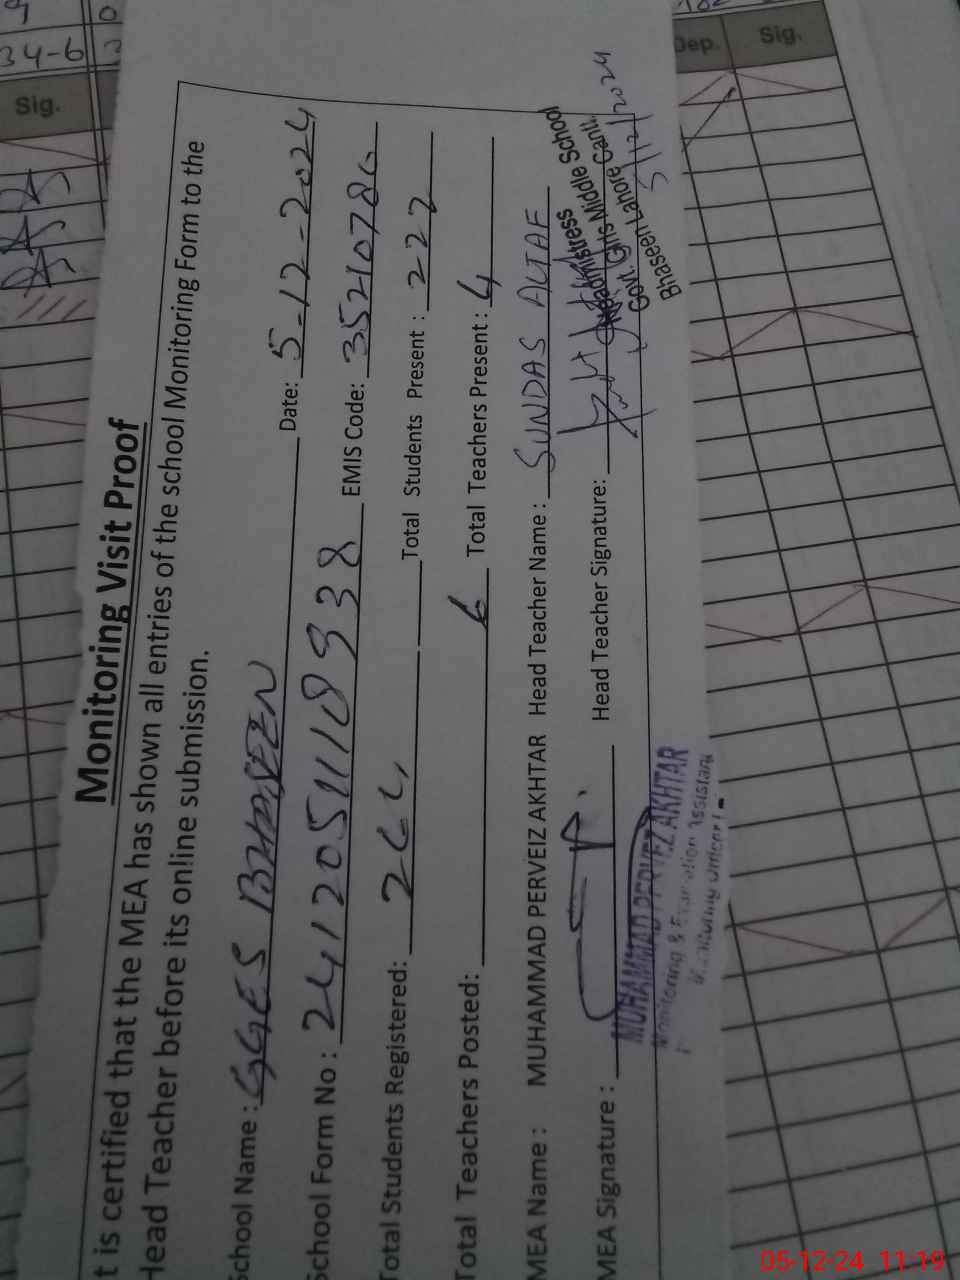 Monitoring Visit Proof
t is certified that the MEA has shown all entries of the school Monitoring Form to the
Head Teacher before its online submission.
School Name : GGES BHASEEN Date: 5-12-2024
School Form No : EMIS Code:
Total Students Registered: Total Students Present : 222
Total Teachers Posted: 6 Total Teachers Present : 4
MEA Name : MUHAMMAD PERVEIZ AKHTAR Head Teacher Name : SUNDAS ALTAF
MEA Signature : Head Teacher Signature:
Headmistress
Govt. Girls Middle School
Bhaseen Lahore Cantt.
5/12/2024
MUHAMMAD PERVEZ AKHTAR
Monitoring & Evaluation Assistant
34-6
Sig.
Dep. Sig.
05-12-24 11:19